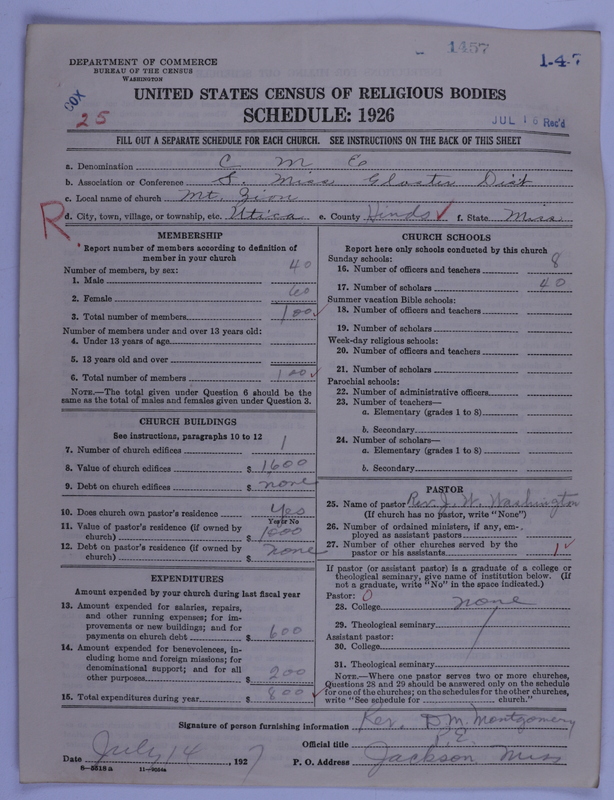 1457
1-4-7
DEPARTMENT OF COMMERCE
BUREAU OF THE CENSUS
WASHINGTON
COX
25
UNITED STATES CENSUS OF RELIGIOUS BODIES
SCHEDULE: 1926
JUL 16 Rec'd
FILL OUT A SEPARATE SCHEDULE FOR EACH CHURCH. SEE INSTRUCTIONS ON THE BACK OF THIS SHEET
a. Denomination C M E
b. Association or Conference S. Miss Gloster Dist
c. Local name of church Mt. Zion
R
d. City, town, village, or township, etc. Utica e. County Hinds ✓ f. State Miss.
MEMBERSHIP
Report number of members according to definition of
member in your church
Number of members, by sex:
1. Male 40
2. Female 60
3. Total number of members 100 ✓
Number of members under and over 13 years old:
4. Under 13 years of age
5. 13 years old and over
6. Total number of members 100 ✓
NOTE.—The total given under Question 6 should be the
same as the total of males and females given under Question 3.
CHURCH BUILDINGS
See instructions, paragraphs 10 to 12
7. Number of church edifices 1
8. Value of church edifices $ 1600
9. Debt on church edifices $ none
10. Does church own pastor's residence? Yes
Yes or No
11. Value of pastor's residence (if owned by
church) $ 1000
12. Debt on pastor's residence (if owned by
church) $ none
EXPENDITURES
Amount expended by your church during last fiscal year
13. Amount expended for salaries, repairs,
and other running expenses; for im-
provements or new buildings; and for
payments on church debt $ 600
14. Amount expended for benevolences, in-
cluding home and foreign missions; for
denominational support; and for all
other purposes $ 200
15. Total expenditures during year $ 800 ✓
CHURCH SCHOOLS
Report here only schools conducted by this church
Sunday schools:
16. Number of officers and teachers 8
17. Number of scholars 40
Summer vacation Bible schools:
18. Number of officers and teachers
19. Number of scholars
Week-day religious schools:
20. Number of officers and teachers
21. Number of scholars
Parochial schools:
22. Number of administrative officers
23. Number of teachers—
a. Elementary (grades 1 to 8)
b. Secondary
24. Number of scholars—
a. Elementary (grades 1 to 8)
b. Secondary
PASTOR
25. Name of pastor Rev. J. W. Washington
(If church has no pastor, write "None")
26. Number of ordained ministers, if any, em-
ployed as assistant pastors
27. Number of other churches served by the
pastor or his assistants 1 ✓
If pastor (or assistant pastor) is a graduate of a college or
theological seminary, give name of institution below. (If
not a graduate, write "No" in the space indicated.)
Pastor: 0
28. College none
29. Theological seminary
Assistant pastor:
30. College
31. Theological seminary
NOTE.—Where one pastor serves two or more churches,
Questions 28 and 29 should be answered only on the schedule
for one of the churches; on the schedules for the other churches,
write "See schedule for church."
Signature of person furnishing information Rev. D. M. Montgomery
Official title P.E.
Date July 14, 1927 P. O. Address Jackson Miss
8-5518 a